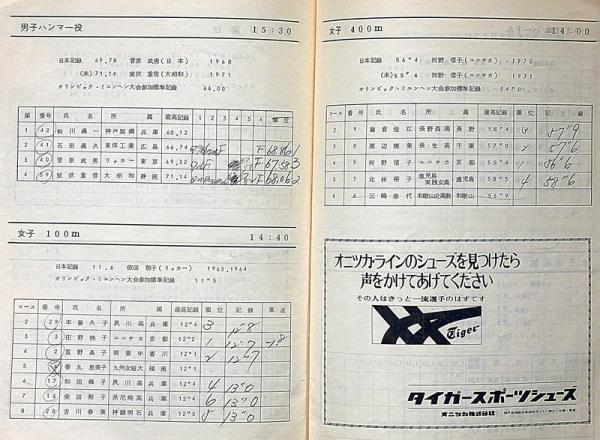 男子ハンマー投 15:30
日本記録 69.78 菅原 武男(日本) 1968
(未)71.14 室伏 重信(大昭和) 1971
オリンピック・ミュンヘン大会参加標準記録 66.00
順 番号 氏名 所属 最高記録 1 2 3 4 5 6 順位
1 42 松川義一 神戸製鋼 兵庫 60.12
2 41 石田義久 東洋工業 広島 66.74 68.86 1
3 40 菅原武男 リッカー 東京 69.52 67.58 3
4 39 室伏重信 大昭和 静岡 71.14 68.06 2
女子 100m 14:40
日本記録 11.6 依田 郁子(リッカー) 1963,1964
オリンピック・ミュンヘン大会参加標準記録 11"5
コース 番号 氏名 所属 最高記録 順位 記録 風速
2 29 本藤久子 夙川高 兵庫 12"4 3 12"8
3 5 庄野映子 ユニチカ 京都 12"2 1 12"7 -1.8
4 2 重野眞子 明善中 香川 12"1 2 12"7
5 香丸恵美子 九州女短大 福岡 12"1
6 17 和田峰子 夙川高 兵庫 12"4 4 13"0
7 16 柴田裕子 県尼崎高 兵庫 12"4 6 13"0
8 28 吉川春美 神鋼明石 兵庫 12"5 5 13"0
女子 400m 14:00
日本記録 56"4 河野 信子(ユニチカ) 1970
(未)55"6 河野 信子(ユニチカ) 1971
オリンピック・ミュンヘン大会参加標準記録 54"0
コース 番号 氏名 所属 最高記録 順位 記録
2 9 藤倉佳江 長野西高 長野 58"4 3 57"9
3 8 渡辺瑗美 長生高 千葉 58"3 2 57"6
4 4 河野信子 ユニチカ 京都 55"6 1 56"6
5 7 北林裕子 鹿児島実践女高 鹿児島 58"2 4 58"6
6 三嶋恭代 和歌山北高教 和歌山 56"9
オニツカ・ラインのシューズを見つけたら
声をかけてあげてください
その人はきっと一流選手のはずです
Tiger
タイガースポーツシューズ
オニツカ株式会社